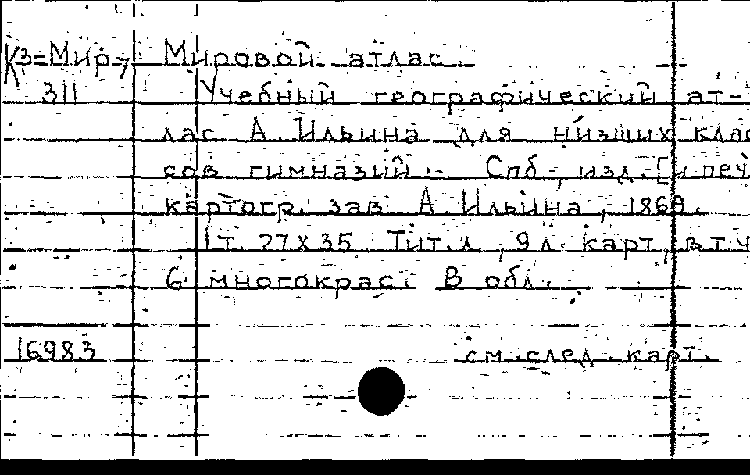 К3=Мир-7 Мировой атлас.
311 Учебный географический ат-
лас А Ильина для низших клас
сов гимназий.- Спб, изд. [и печ
картогр. зав А Ильина, 1869.
1т. 27х35 Тит.л, 9л карт, в.т.ч
6 многокрас. В обл.
16983 см.след.карт.